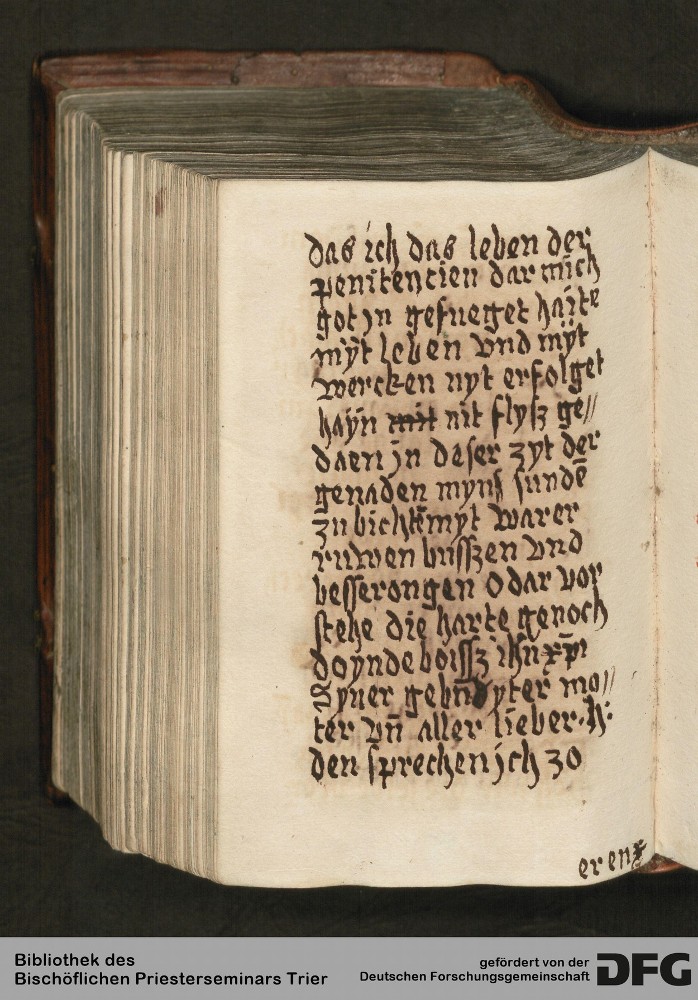 das ich das leben der
penitencien dar mich
got jn gefueget haite
mÿt leben vnd mÿt
wercken nyt erfolget
haÿn mit nit flyſz ge//
daen jn daſer zyt der
genaden myns ſundē
zu bicht myt warer
ruwen buſſzen vnd
beſſerongen O dar vor
ſtehe die harte genoch
doynde boiſſz ihū xp̄i
Syner gebn̄dyter mo//
ter vn̄ aller lieber h:
den ſprechen jch zo
eren
Bibliothek des
Bischöflichen Priesterseminars Trier
gefördert von der
Deutschen Forschungsgemeinschaft
DFG